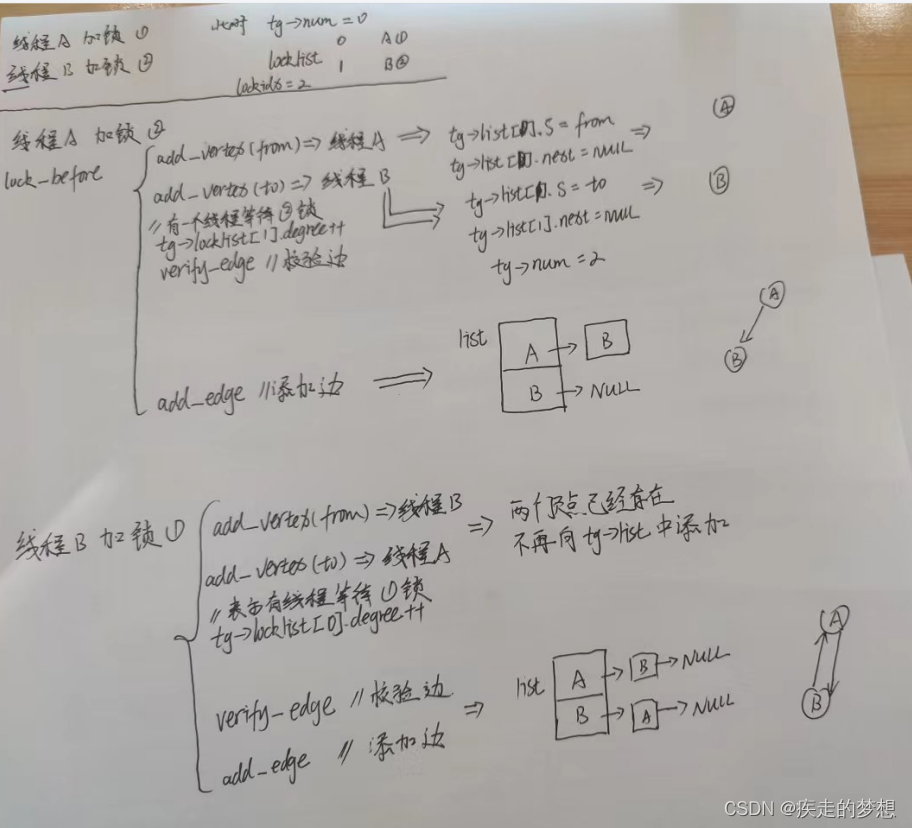 线程A 加锁① 此时 tg→num=0
线程B 加锁② locklist 0 A①
1 B②
lockidx=2
线程A 加锁②
lock_before
add_vertex(from)=>线程A => tg→list[0].s=from => A
tg→list[0].next=NULL
add_vertex(to)=>线程B tg→list[1].s=to => B
//有一个线程等待②锁 tg→list[1].next=NULL
tg→locklist[1].degree++
verify_edge //校验边 tg→num=2
A
B
list A → B
B → NULL
add_edge //添加边 =>
线程B 加锁①
add_vertex(from)=>线程B => 两个顶点已经存在
add_vertex(to)=>线程A 不再向tg→list中添加
//表示有线程等待①锁
tg→locklist[0].degree++
verify_edge //校验边 =>
add_edge // 添加边
list A → B → NULL
B → A → NULL
A
B
CSDN @疾走的梦想